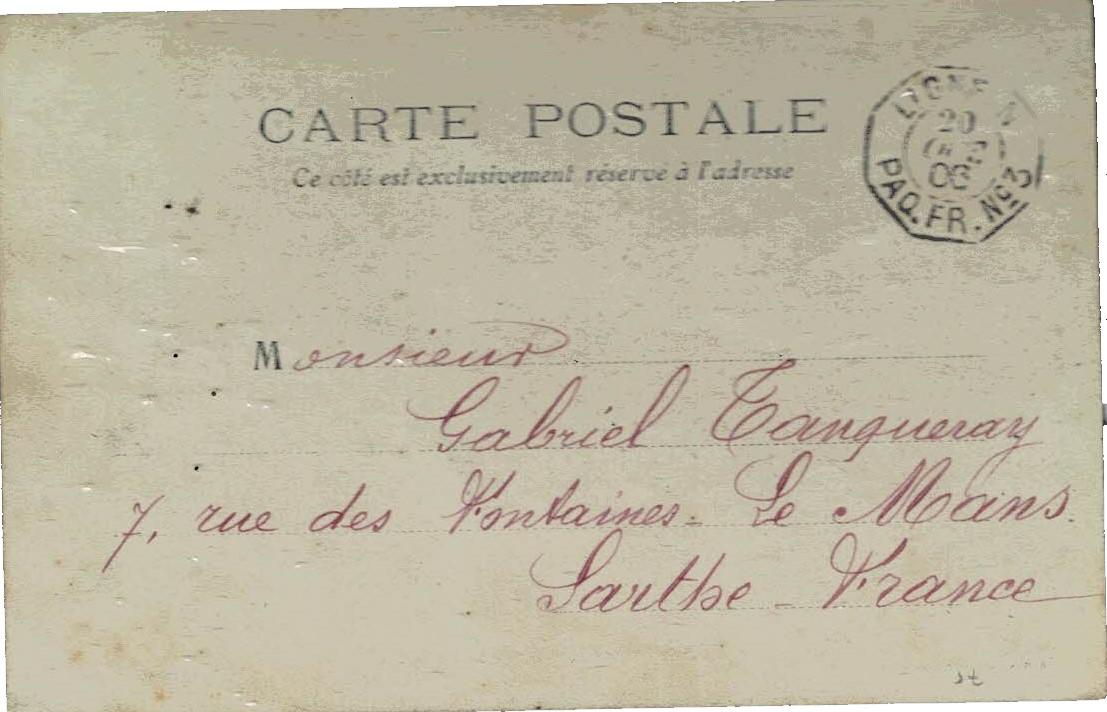 CARTE POSTALE
Ce côté est exclusivement réservé à l'adresse
LIGNE N
20
06
PAQ. FR. Nº3
Monsieur
Gabriel Tanqueray
7, rue des Fontaines - Le Mans.
Sarthe - France